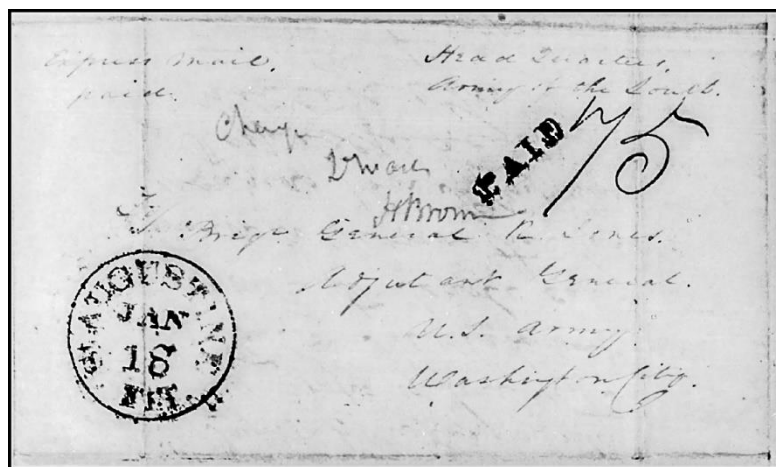 Express Mail,
paid.
Head Quarters,
Army of the South.
Charge
PAID 75
H Brown
To
Brigr General R. Jones.
Adjutant General.
U.S. Army.
Washington City.
ST. AUGUSTINE
JAN
18